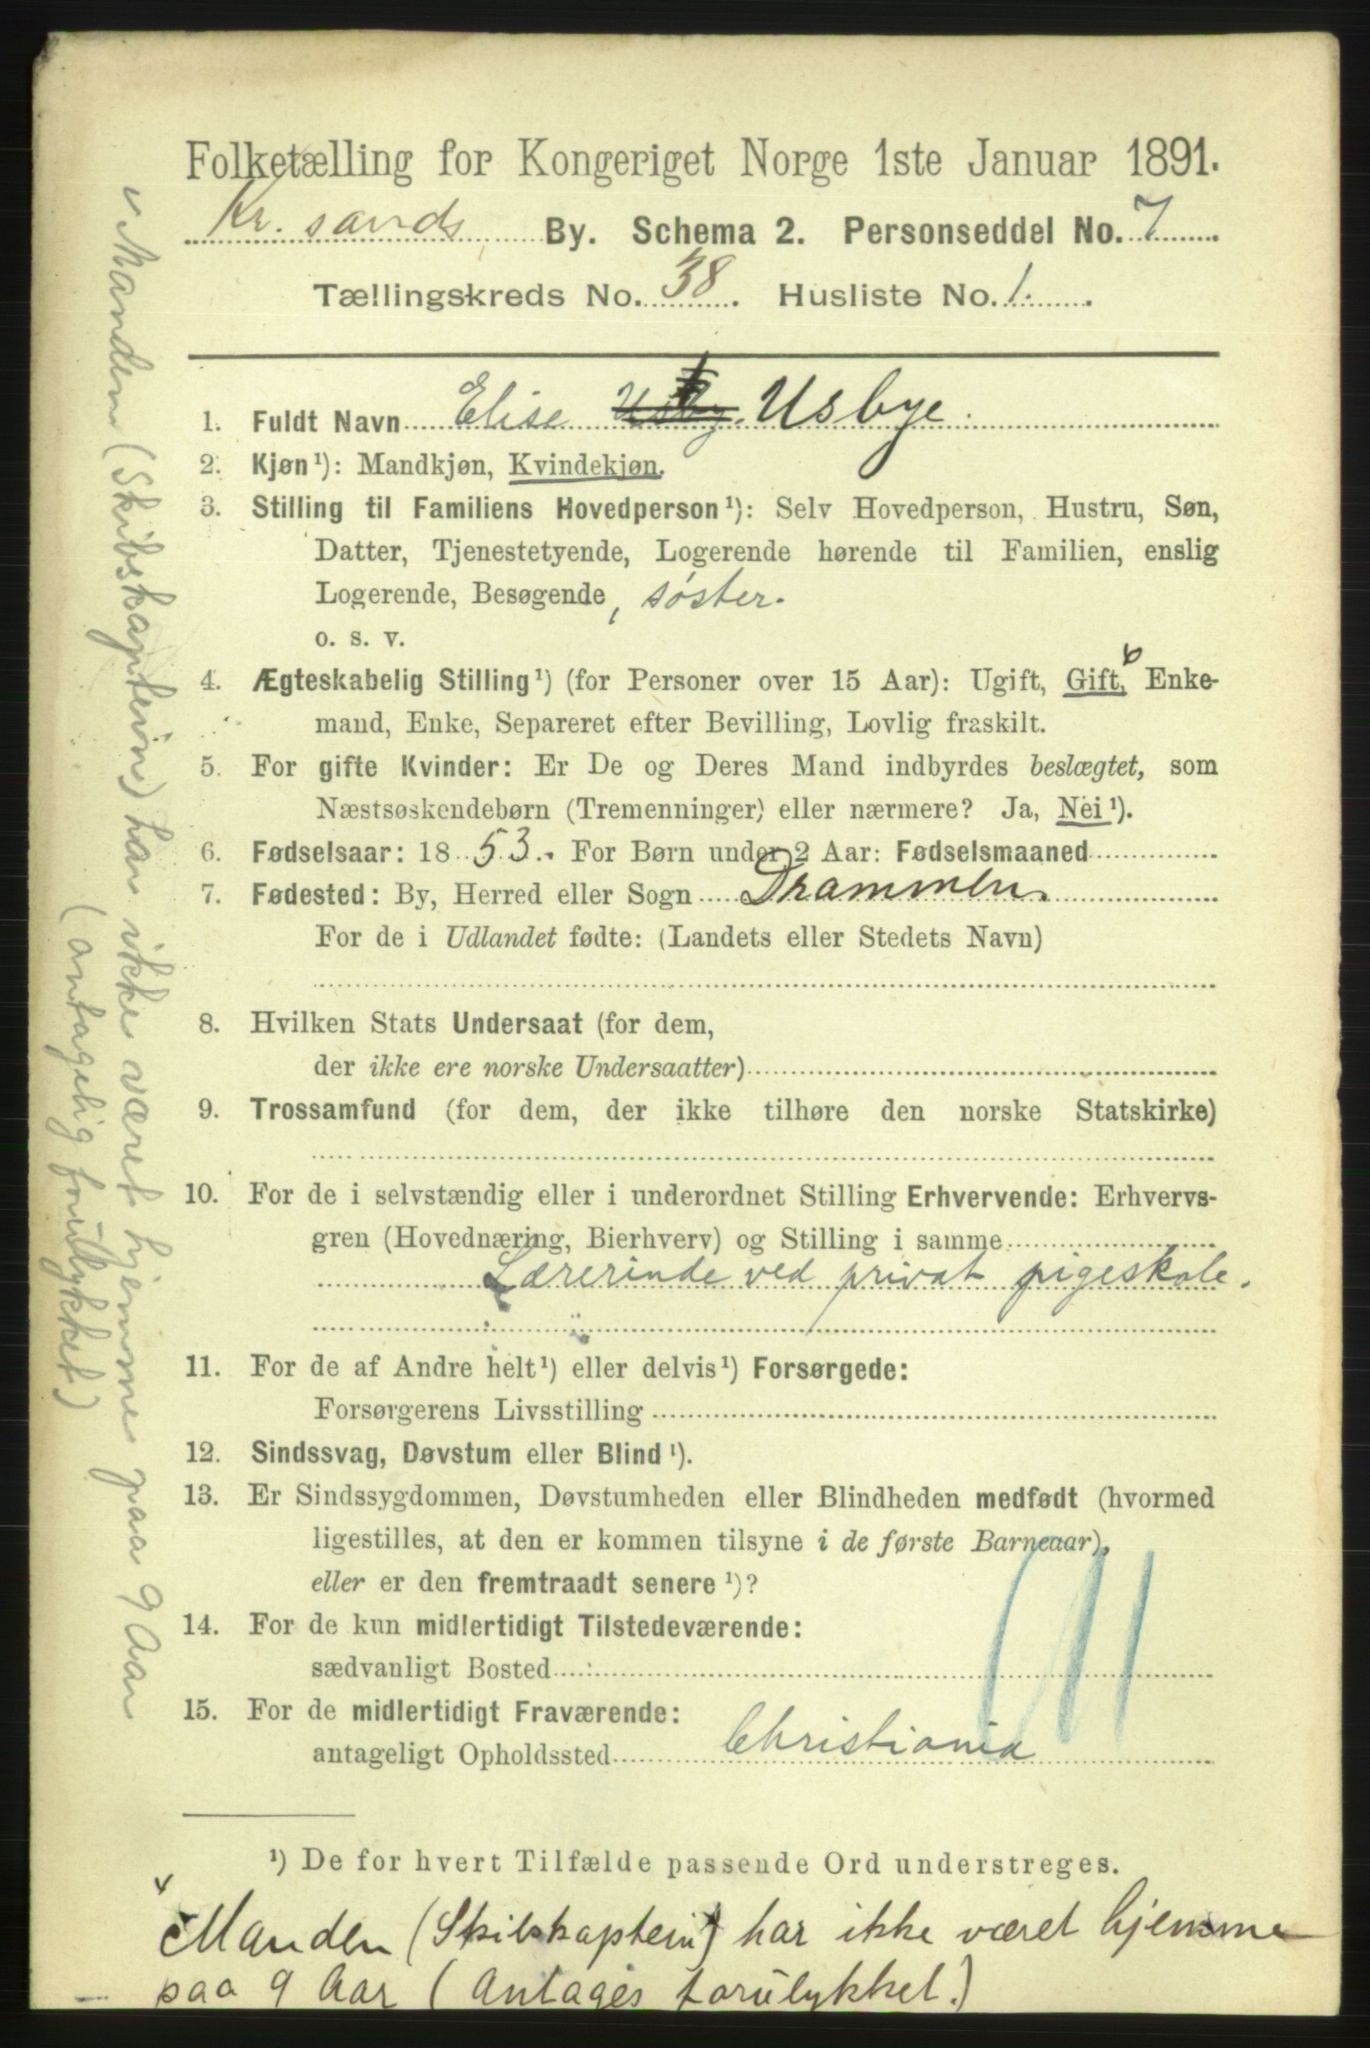 Folketælling for Kongeriget Norge 1ste Januar 1891.
Kr. sands By. Schema 2. Personseddel No. 7
Tællingskreds No. 38. Husliste No. 1.
1. Fuldt Navn Elise Usbye.
2. Kjøn¹): Mandkjøn, Kvindekjøn.
3. Stilling til Familiens Hovedperson¹): Selv Hovedperson, Hustru, Søn,
Datter, Tjenestetyende, Logerende hørende til Familien, enslig
Logerende, Besøgende, søster.
o. s. v.
4. Ægteskabelig Stilling¹) (for Personer over 15 Aar): Ugift, Gift, Enke-
mand, Enke, Separeret efter Bevilling, Lovlig fraskilt.
5. For gifte Kvinder: Er De og Deres Mand indbyrdes beslægtet, som
Næstsøskendebørn (Tremenninger) eller nærmere? Ja, Nei¹).
6. Fødselsaar: 1853. For Børn under 2 Aar: Fødselsmaaned
7. Fødested: By, Herred eller Sogn Drammen.
For de i Udlandet fødte: (Landets eller Stedets Navn)
8. Hvilken Stats Undersaat (for dem,
der ikke ere norske Undersaatter)
9. Trossamfund (for dem, der ikke tilhøre den norske Statskirke)
10. For de i selvstændig eller i underordnet Stilling Erhvervende: Erhvervs-
gren (Hovednæring, Bierhverv) og Stilling i samme
Lærerinde ved privat pigeskole.
11. For de af Andre helt¹) eller delvis¹) Forsørgede:
Forsørgerens Livsstilling
12. Sindssvag, Døvstum eller Blind¹).
13. Er Sindssygdommen, Døvstumheden eller Blindheden medfødt (hvormed
ligestilles, at den er kommen tilsyne i de første Barneaar),
eller er den fremtraadt senere¹)?
14. For de kun midlertidigt Tilstedeværende:
sædvanligt Bosted
15. For de midlertidigt Fraværende:
antageligt Opholdssted Christiania
¹) De for hvert Tilfælde passende Ord understreges.
Manden (Skibskaptein) har ikke været hjemme
paa 9 Aar (Antages forulykket.)
Manden (Skibskaptein) har ikke været hjemme paa 9 Aar
(antagelig forulykket)